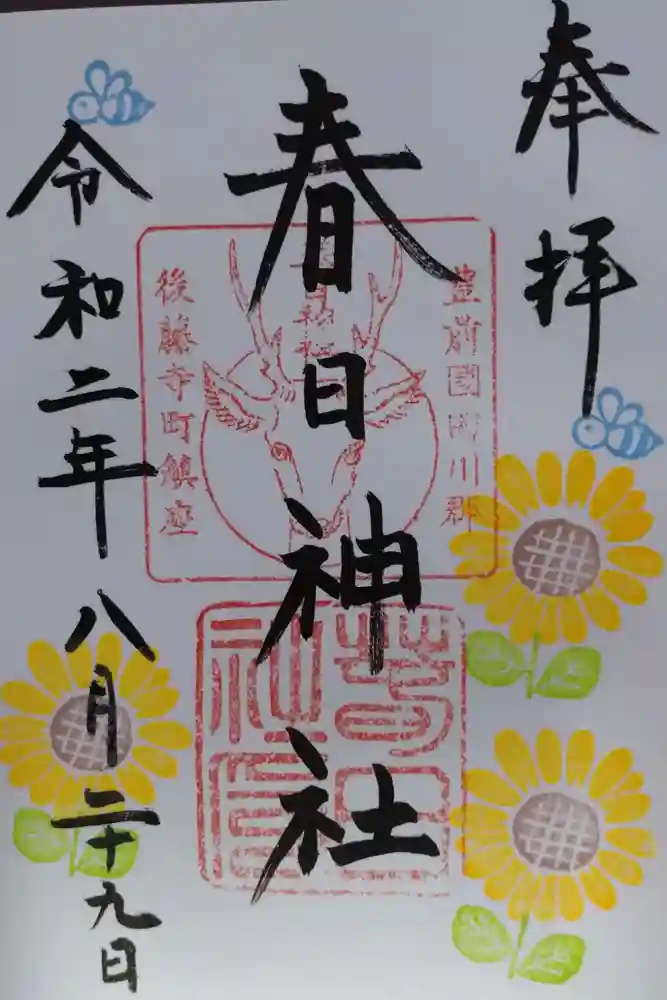 奉拝
豊前國田川郡
春日神社
春日神社
後藤寺町鎮座
令和二年八月二十九日